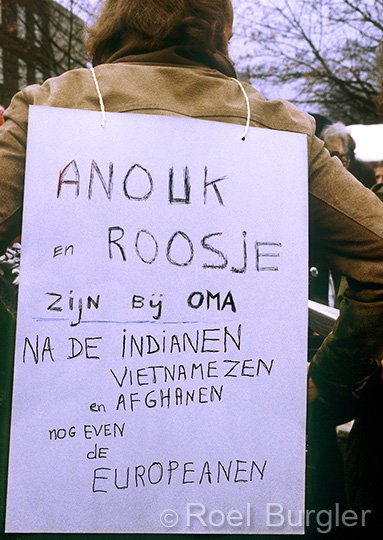 ANOUK
EN ROOSJE
ZIJN BIJ OMA
NA DE INDIANEN
VIETNAMEZEN
en AFGHANEN
NOG EVEN
de
EUROPEANEN
© Roel Burgler